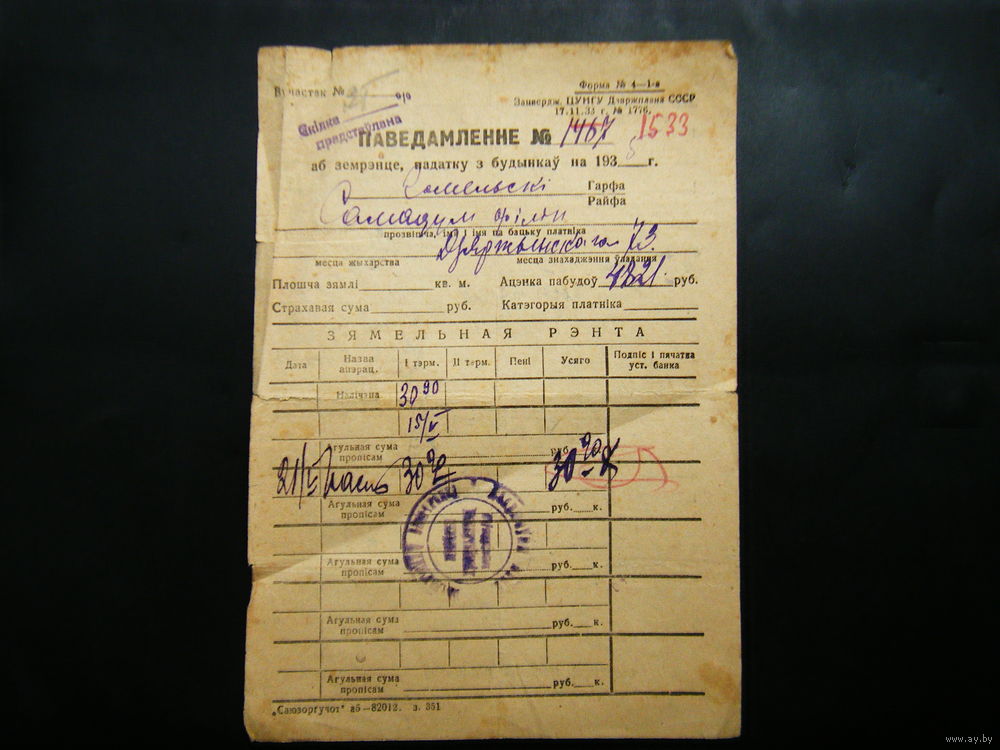 Вучастак №
Форма № 4—1-а
Зацвердж. ЦУНГУ Дзяржплана СССР
17.11.33 г. № 1776.
Скідка прадстаўлена
ПАВЕДАМЛЕННЕ № 1467 1533
абземрэнце, падатку з будынкаў на 193 г.
Гомельскі Гарфа
Райфа
прозвішча, імя і імя па бацьку платніка
Дзяржынскага 73
месца жыхарства месца знаходжэння ўладання
Плошча зямлі кв. м. Ацэнка пабудоў 4821 руб.
Страхавая сума руб. Катэгорыя платніка
ЗЯМЕЛЬНАЯ РЭНТА
Дата Назва апэрац. I тэрм. II тэрм. Пені Усяго Подпіс і пячатка уст. банка
Налічана 30 90
15/V
Агульная сума пропісам руб.
21/V 30 90 30 90 к
Агульная сума пропісам руб. к.
Агульная сума пропісам руб. к.
Агульная сума пропісам руб. к.
Агульная сума пропісам руб. к.
„Саюзоргучот" аб—82012. з. 351
www.ay.by